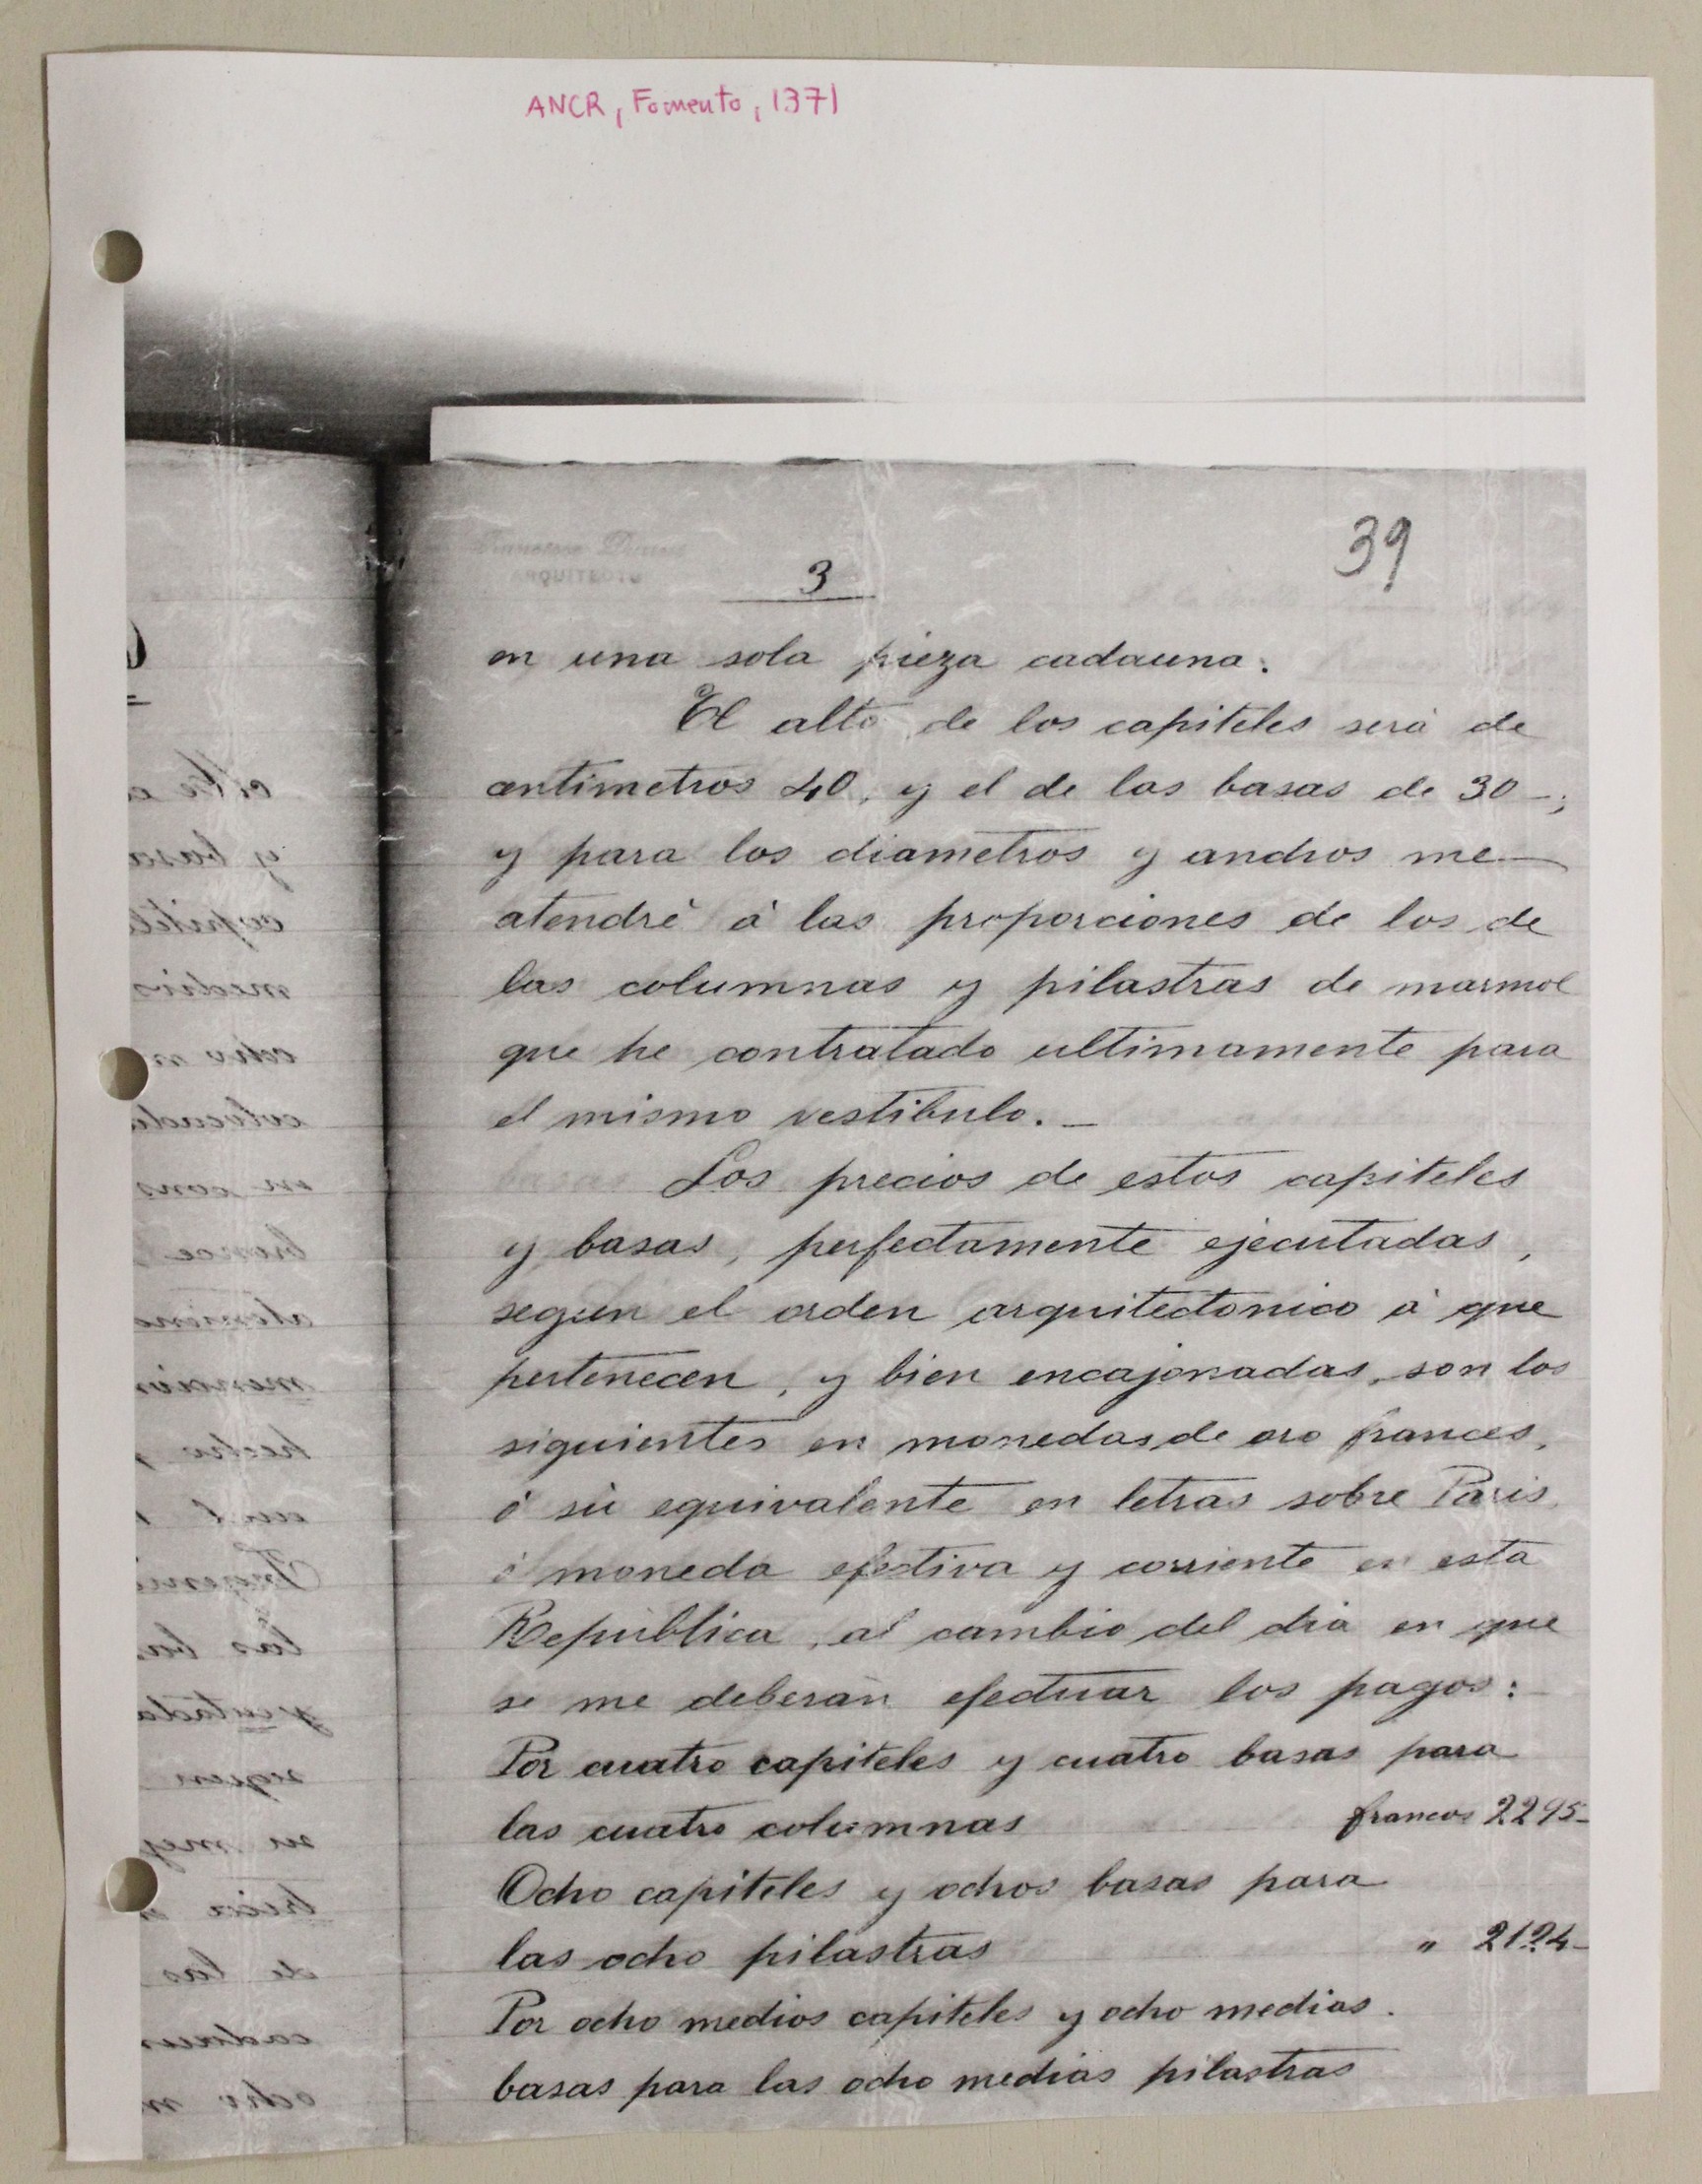 ANCR, Fomento, 1371
39
ARQUITECTO
3
en una sola pieza cadauna.
El alto de los capiteles serà de
centimetros 40, y el de las basas de 30 -;
y para los diametros y anchos me
atendrè à las proporciones de los de
las columnas y pilastras de marmol
que he contratado ultimamente para
el mismo vestibulo. -
Los precios de estos capiteles
y basas, perfectamente ejecutadas,
segun el orden arquitectonico à que
pertenecen, y bien encajonadas, son los
siguientes en monedas de oro frances,
ò sù equivalente en letras sobre Paris,
ò moneda efectiva y corriente en esta
Repùblica, al cambio del dia en que
se me deberàn efectuar los pagos:
Por cuatro capiteles y cuatro basas para
las cuatro columnas francos 2295-
Ocho capiteles y ochos basas para
las ocho pilastras " 2124-
Por ocho medios capiteles y ocho medias
basas para las ocho medias pilastras